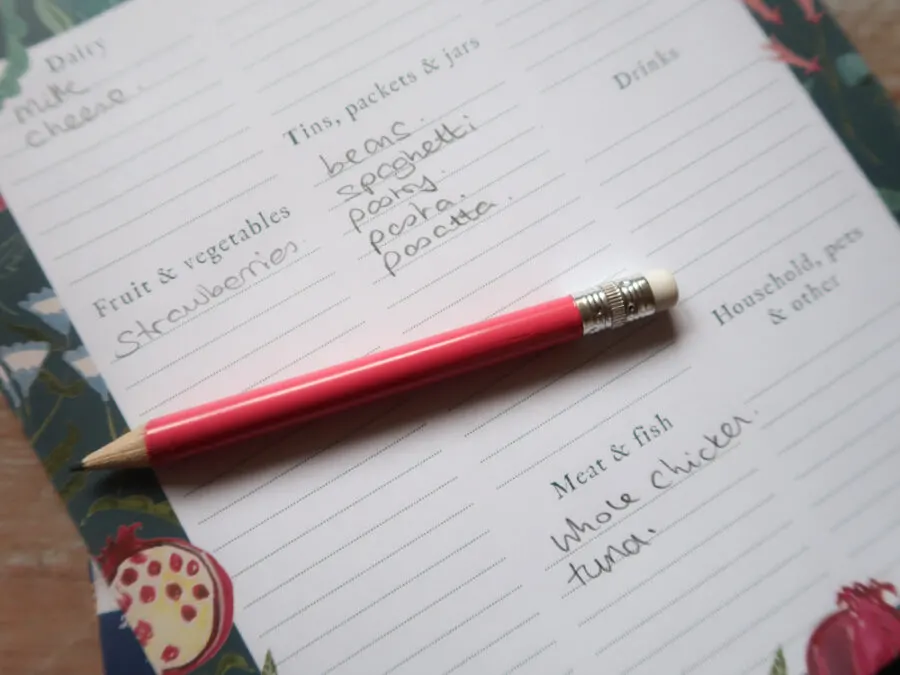 Dairy
milk
cheese.
Tins, packets & jars
beans.
spaghetti
pastry.
pasta.
pasatta.
Drinks
Fruit & vegetables
Strawberries.
Household, pets
& other
Meat & fish
Whole Chicken.
tuna.